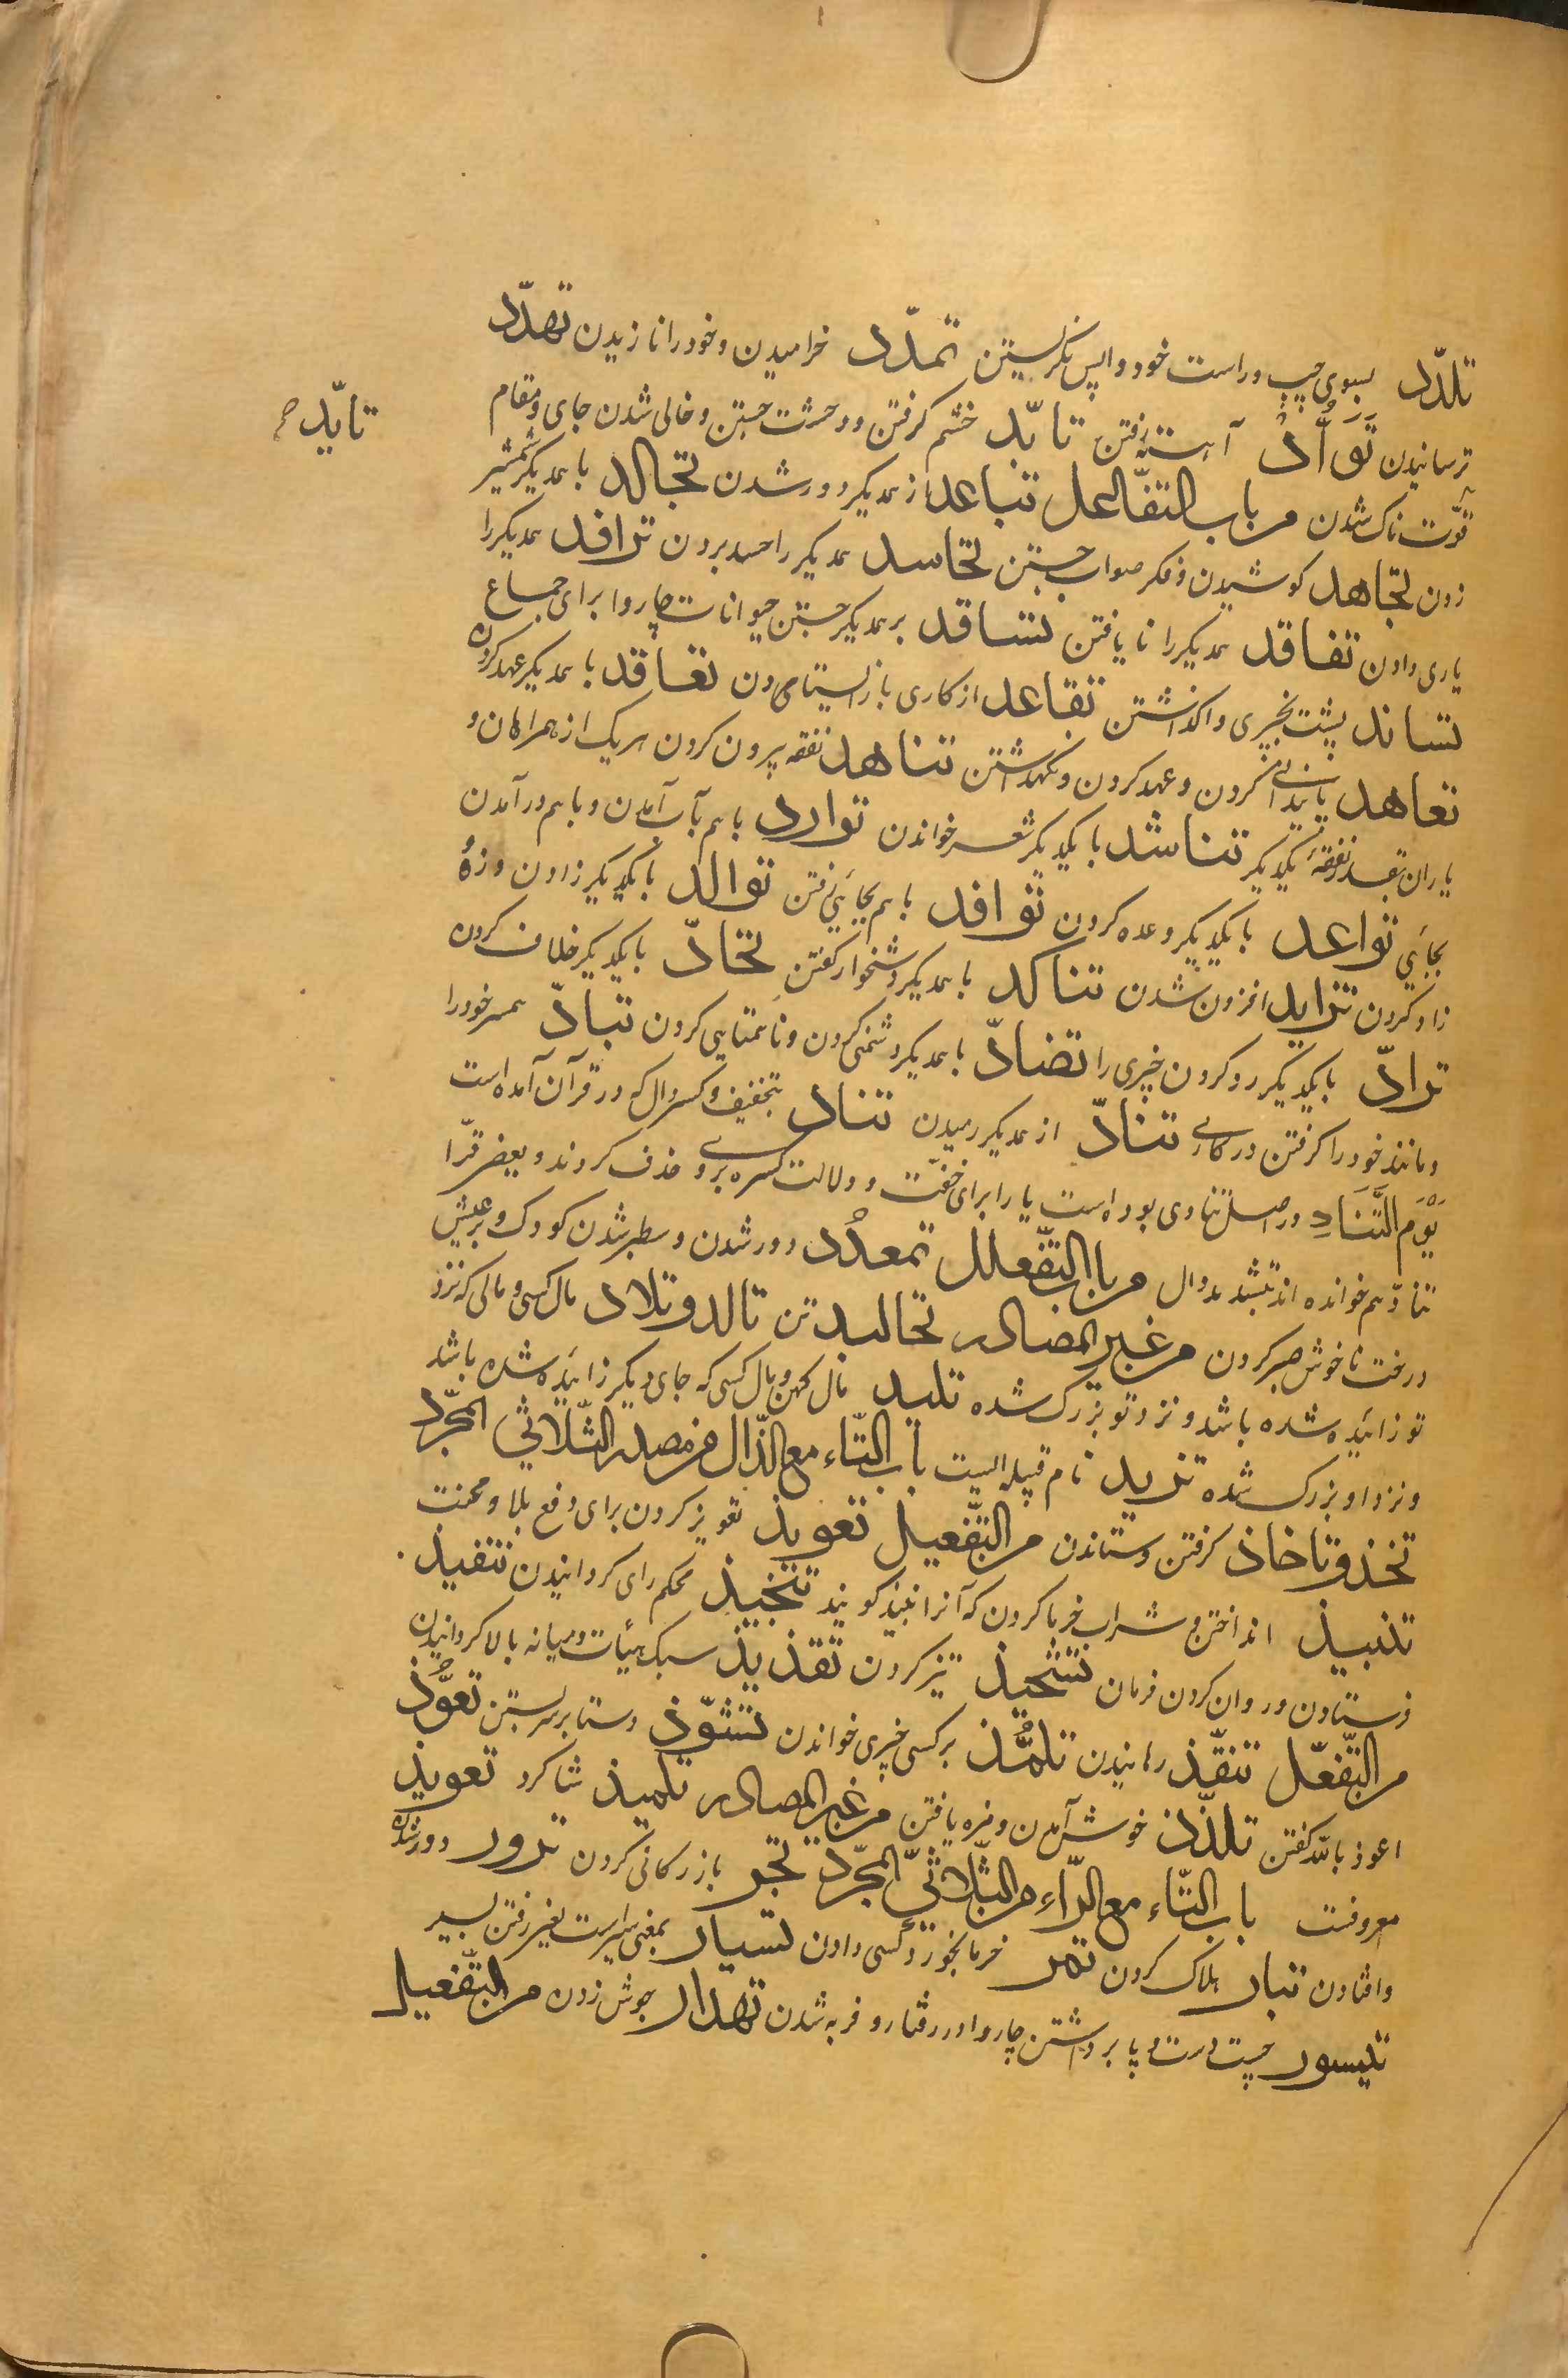 تلدّد بسوی چپ و راست خود و واپس نگریستن تمدّد خرامیدن و خود را نازیدن تهدّد
ترسانیدن تَوَأُّدْ آهسته رفتن تأبّد خشم گرفتن و وحشت جستن و خالی شدن جای و مقام
تأیّد صح
قوّت ناک شدن من باب التفاعل تباعد از همدیکر دور شدن تجالد با همدیکر شمشیر
زدن تجاهد کوشیدن و فکر صواب جستن تحاسد همدیکر را حسد بردن ترافد همدیکر را
یاری دادن تفاقد همدیکر را نا یافتن تسافد بر همدیکر جستن حیوانات چاروا برای جماع
تساند پشت بچیزی وا گذاشتن تقاعد از کاری باز ایستادن تعاقد با همدیکر عهد کردن
تعاهد کردن و عهد کردن و نکهداشتن تناهد نفقه بیرون کردن هر یک از همراهان و
یاران بقدر نفقهٔ یکدیکر تناشد با یکدیکر شعر خواندن توارد با هم بآب آمدن و با هم در آمدن
بجائی تواعد با یکدیکر وعده کردن توافد با هم بجائی رفتن توالد با یکدیکر زادن و زه و
زاد کردن تزاید افزون شدن تناکد با همدیکر دشخوار کفتن تحادّ با یکدیکر خلاف کردن
ترادّ با یکدیکر رد کردن چیزی را تضادّ با همدیکر دشمنی کردن و ناهمتایی کردن تبادّ همسر خود را
و مانند خود را کرفتن در کاری تنادّ از همدیکر رمیدن تناد بتخفیف و کسر دال که در قرآن آمده است
یَوْمَ التَّنَادِ در اصل تنادی بوده است یا را برای خفّت و دلالت کسره برو حذف کردند و بعضی قرّا
تنادّ هم خوانده اند بتشدید دال من باب التّفعلل تمعدُد دور شدن و سطبر شدن کودک و بر عیش
درخت ناخوش صبر کردن من غیر المصادر تجالید تن تالد و تلاد مال کسی و مالی که نزد
تو زائیده شده باشد و نزد تو بزرک شده تلید مال کهن و مال کسی که جای دیکر زائیده شده باشد
و نزد او بزرک شده تزید نام قبیله ایست باب التّاء مع الذّال من مصدر الثّلاثی المجرّد
تخذ و تاخاذ کرفتن و ستاندن من التّفعیل تعویذ تعویذ کردن برای دفع بلا و محنت
تنبیذ انداختن و شراب خرما کردن که آنرا نبیذ کویند تنجیذ محکم رای کردانیدن تنفیذ
فرستادن و روان کردن فرمان تشحیذ تیز کردن تقذیذ سبک هیئات و میانه بالا کردانیدن
من التّفعّل تنقّذ رهانیدن تلمُّذ بر کسی چیزی خواندن تشوّذ دستار بر سر بستن تعوُّذ
اعوذ بالله کفتن تلذّذ خوش آمدن و مزه یافتن من غیر المصادر تلمیذ شاکرد تعویذ
معروفست باب التّاء مع الرّاء من الثّلاثیّ المجرّد تجر بازرکانی کردن ترور دور شدن
و افتادن تبار هلاک کردن تمر خرما بخورد کسی دادن تسیار بمعنی سیر است یعنی رفتن بسیر
تیسور چست دست و پا برداشتن چاروا در رفتار و فربه شدن تهدار جوش زدن من التّفعیل